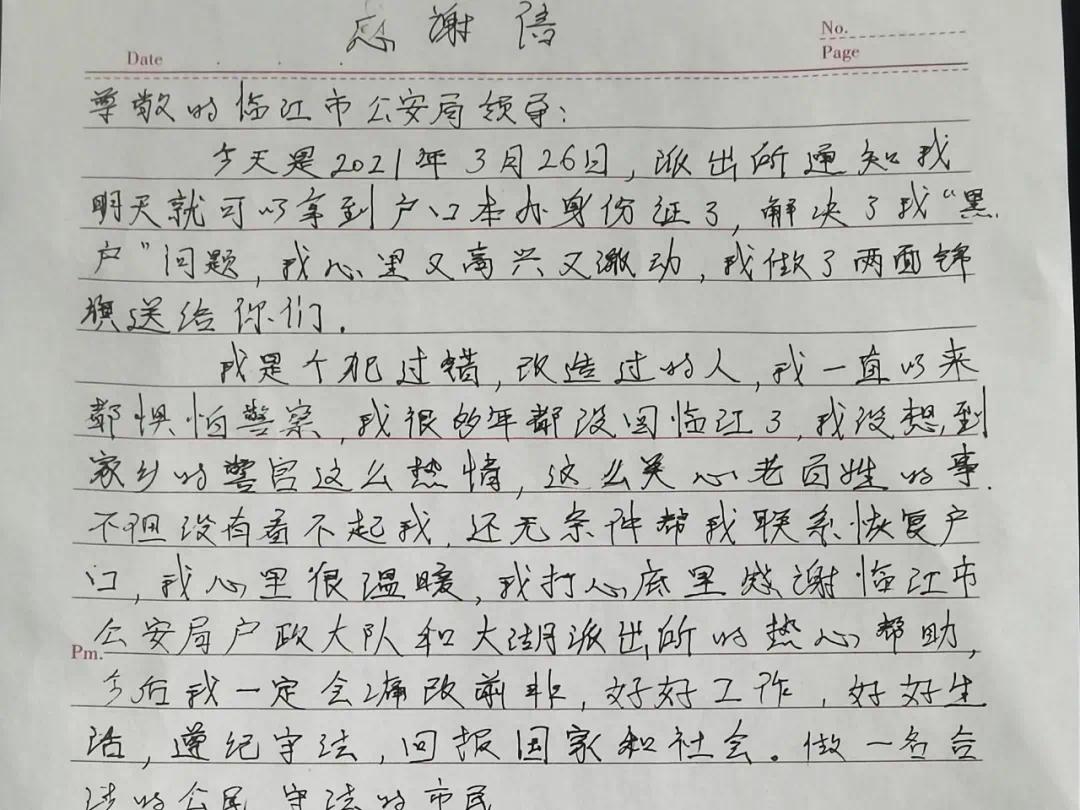 感谢信
No.
Date
Page
尊敬的临江市公安局领导:
今天是2021年3月26日,派出所通知我
明天就可以拿到户口本办身份证了,解决了我“黑
户”问题,我心里又高兴又激动,我做了两面锦
旗送给你们.
我是个犯过错,改造过的人,我一直以来
都惧怕警察,我很多年都没回临江了,我没想到
家乡的警官这么热情,这么关心老百姓的事.
不但没有看不起我,还无条件帮我联系恢复户
口,我心里很温暖,我打心底里感谢临江市
公安局户政大队和大湖派出所的热心帮助,
Pm.
今后我一定会痛改前非,好好工作,好好生
活,遵纪守法,回报国家和社会。做一名合
法的公民 守法的市民